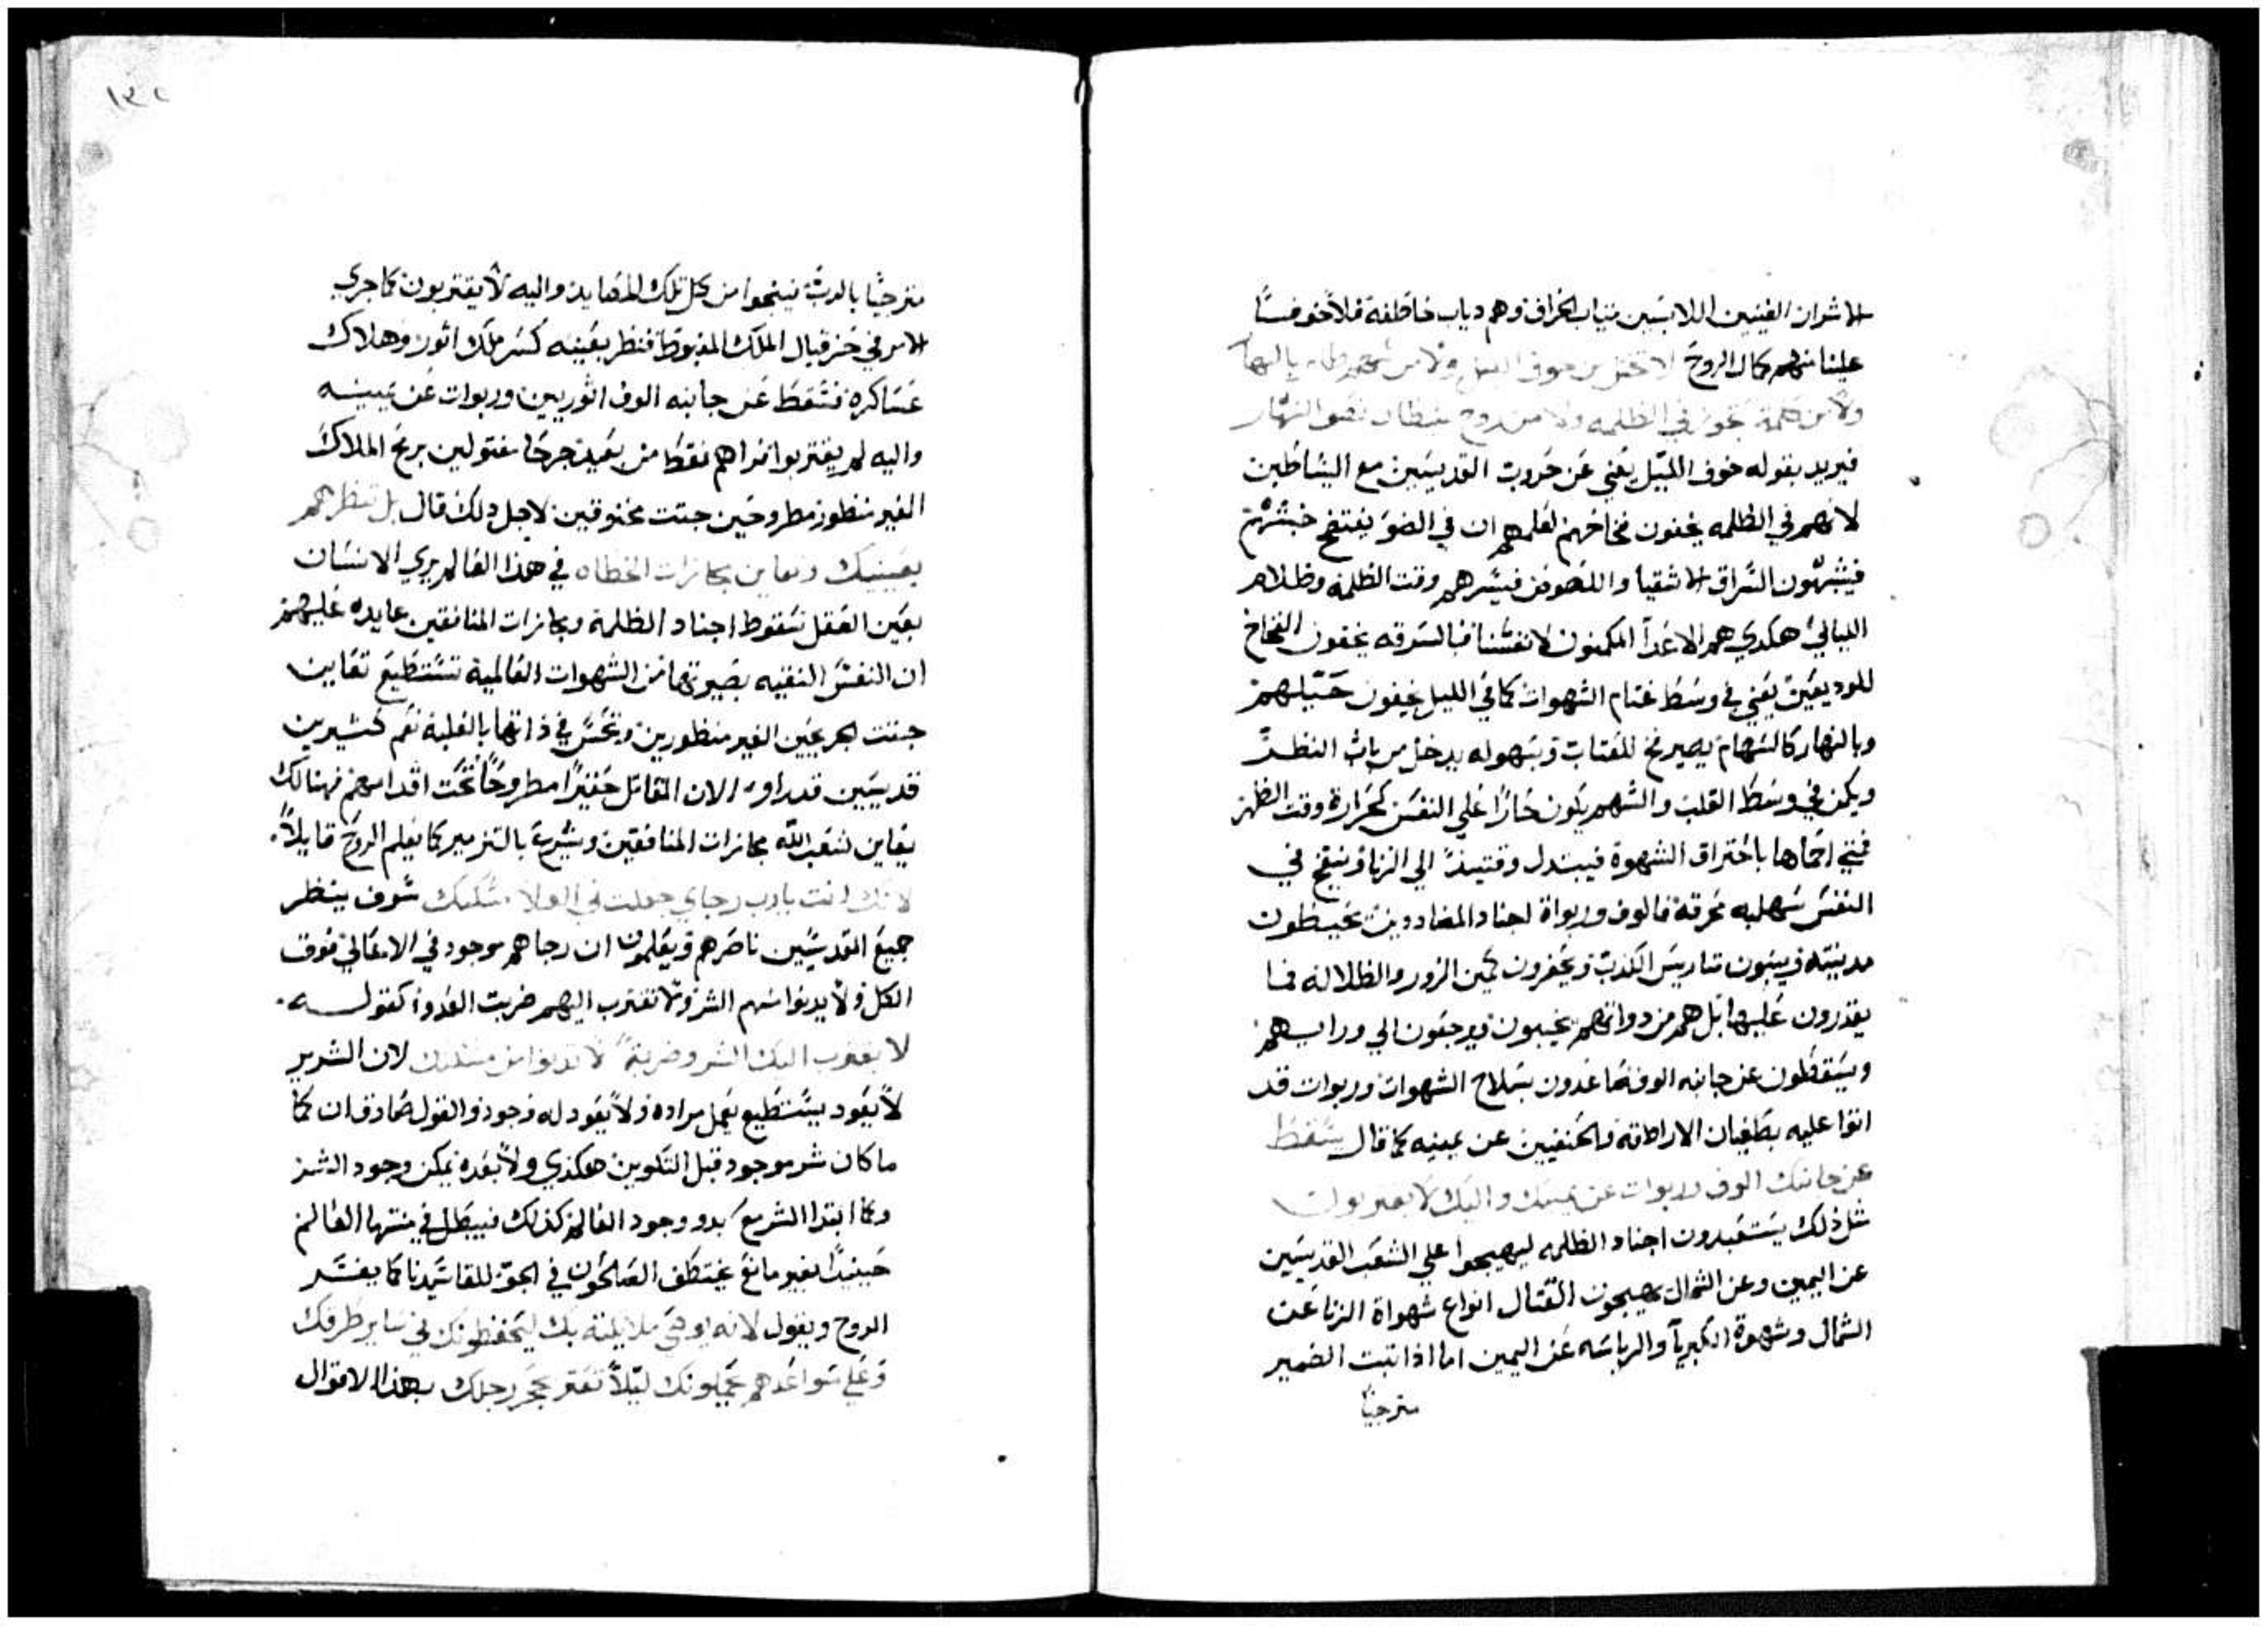 الاشرار الغنيين اللابسين بتياب الخراف وهم دياب خاطفة فلا خوفسًا
علينا منهم كمال الروح لا تخش من خوف الليل ولا من سهم طاير بالنهار
ولا من كلمة تجوز في الظلمه ولا من روح شيطان نصف النهار
فيريد بقوله خوف الليل يعني عن حروب القديسين مع الشياطين
لانهم في الظلمه يخفون فخاخهم لعلمهم ان في الضو يفتضح خبثهم
فيشبهون السراق الاشقيا واللصوص فيسرهم وقت الظلمه وظلام
الليالي هكدي هم الاعدآ المكمنون لانفسنا فبالسرقه يخفون الفخاخ
للوديعين يعني في وسط غتام الشهوات كما في الليل يخفون حيلهم
وبالنهار كالسهام يصير فخ للعتاب وبسهوله يدخل من باب النظر
ويكمن في وسط القلب والسهم يكون حارًا علي النفس كحرارة وقت الظهر
فمتي احماها باحتراق الشهوة فيبتدل وقتيدً الي الزنا وينتج في
النفس سهلبه محرقة فالوف وربواة اجناد المضاددين يحيطون
مدينته ويبنون متاريس الكدب ويحفرون كمين الزور والظلاله فما
يقدرون عليها بل هم من دواتهم يخيبون ويرجعون الي ورايهم
ويسقطون عن جانبه الوف صاعدون بسلاح الشهوات وربوات قد
اتوا عليه بطغيان الاراطقة والحنفيين عن يمينه كما قال يسقط
عن جانبك الوف وربوات عن يمينك واليك لا يقتربوات
مثل ذلك يستعبدون اجناد الظلمه ليهيجوا علي الشعب القديسين
عن اليمين وعن الشمال يهيجون القتال انواع شهواة الزنا عن
الشمال وشهوة الكبريآ والرياسه عن اليمين اما اذا تبت الضمير
مترجيًا
١٣٢
مترجيًا بالرب فينجوا من كل تلك المصايد واليه لا يقتربون كما جري
الامر في حزقيال الملك المغبوط فنظر بعينيه كسر ملك اتور وهلاك
عساكره فسقط عن جانبه الوف اتوريين وربوات عن يمينه
واليه لم يقتربوا فراهم فقط من بعيد جرحا مقتولين برمح الملاك
الغير منظور مطروحين جتت مخنوقين لاجل دلك قال بل تنظرهم
بعينيك وتعاين مجازات الخطاه في هذا العالم يري الانسان
بعين العقل سقوط اجناد الظلمة ومجازات المنافقين عايده عليهم
ان النفس النقيه بصيرتها من الشهوات العالمية تستطيع تعاين
جتت الحربيين الغير منظورين وتحس في ذاتها بالغلبة نعم كثيرين
قديسين قد راوا الان المقاتل حقيرًا مطروحًا تحت اقدامهم فهنالك
يعاين شعب الله مجازات المنافقين ويشرع بالتزمير كما يعلم الروح قايلاً
لانك انت يارب رجاي جعلت في العلا مسكنك سوف ينظر
جميع القديسين ناصرهم ويعلمون ان رجاهم موجود في الاعالي فوق
الكل ولا يدنوا منهم الشر ولا تقترب اليهم ضربت العدو كقوله
لا يقترب اليك الشر وضربة لا تدنوا من مسكنك لان الشرير
لا يعود يستطيع يعمل مراده ولا يعود له وجود والقول صادق ان كما
ما كان شر موجود قبل التكوين هكذي ولا بعده يمكن وجود الشر
وكما ابتدا الشر مع بدو وجود العالم كذلك فيبطل في منتها العالم
حينيدًا بغير مانع يختطف الصالحون في الجو للقا سيدنا كما يفسر
الروح ويقول لانه يوصي ملايكته بك ليحفظونك في ساير طرقك
وعلي سواعدهم يحملونك ليلاً تعتر بحجر رجلك بهذا الاقوال